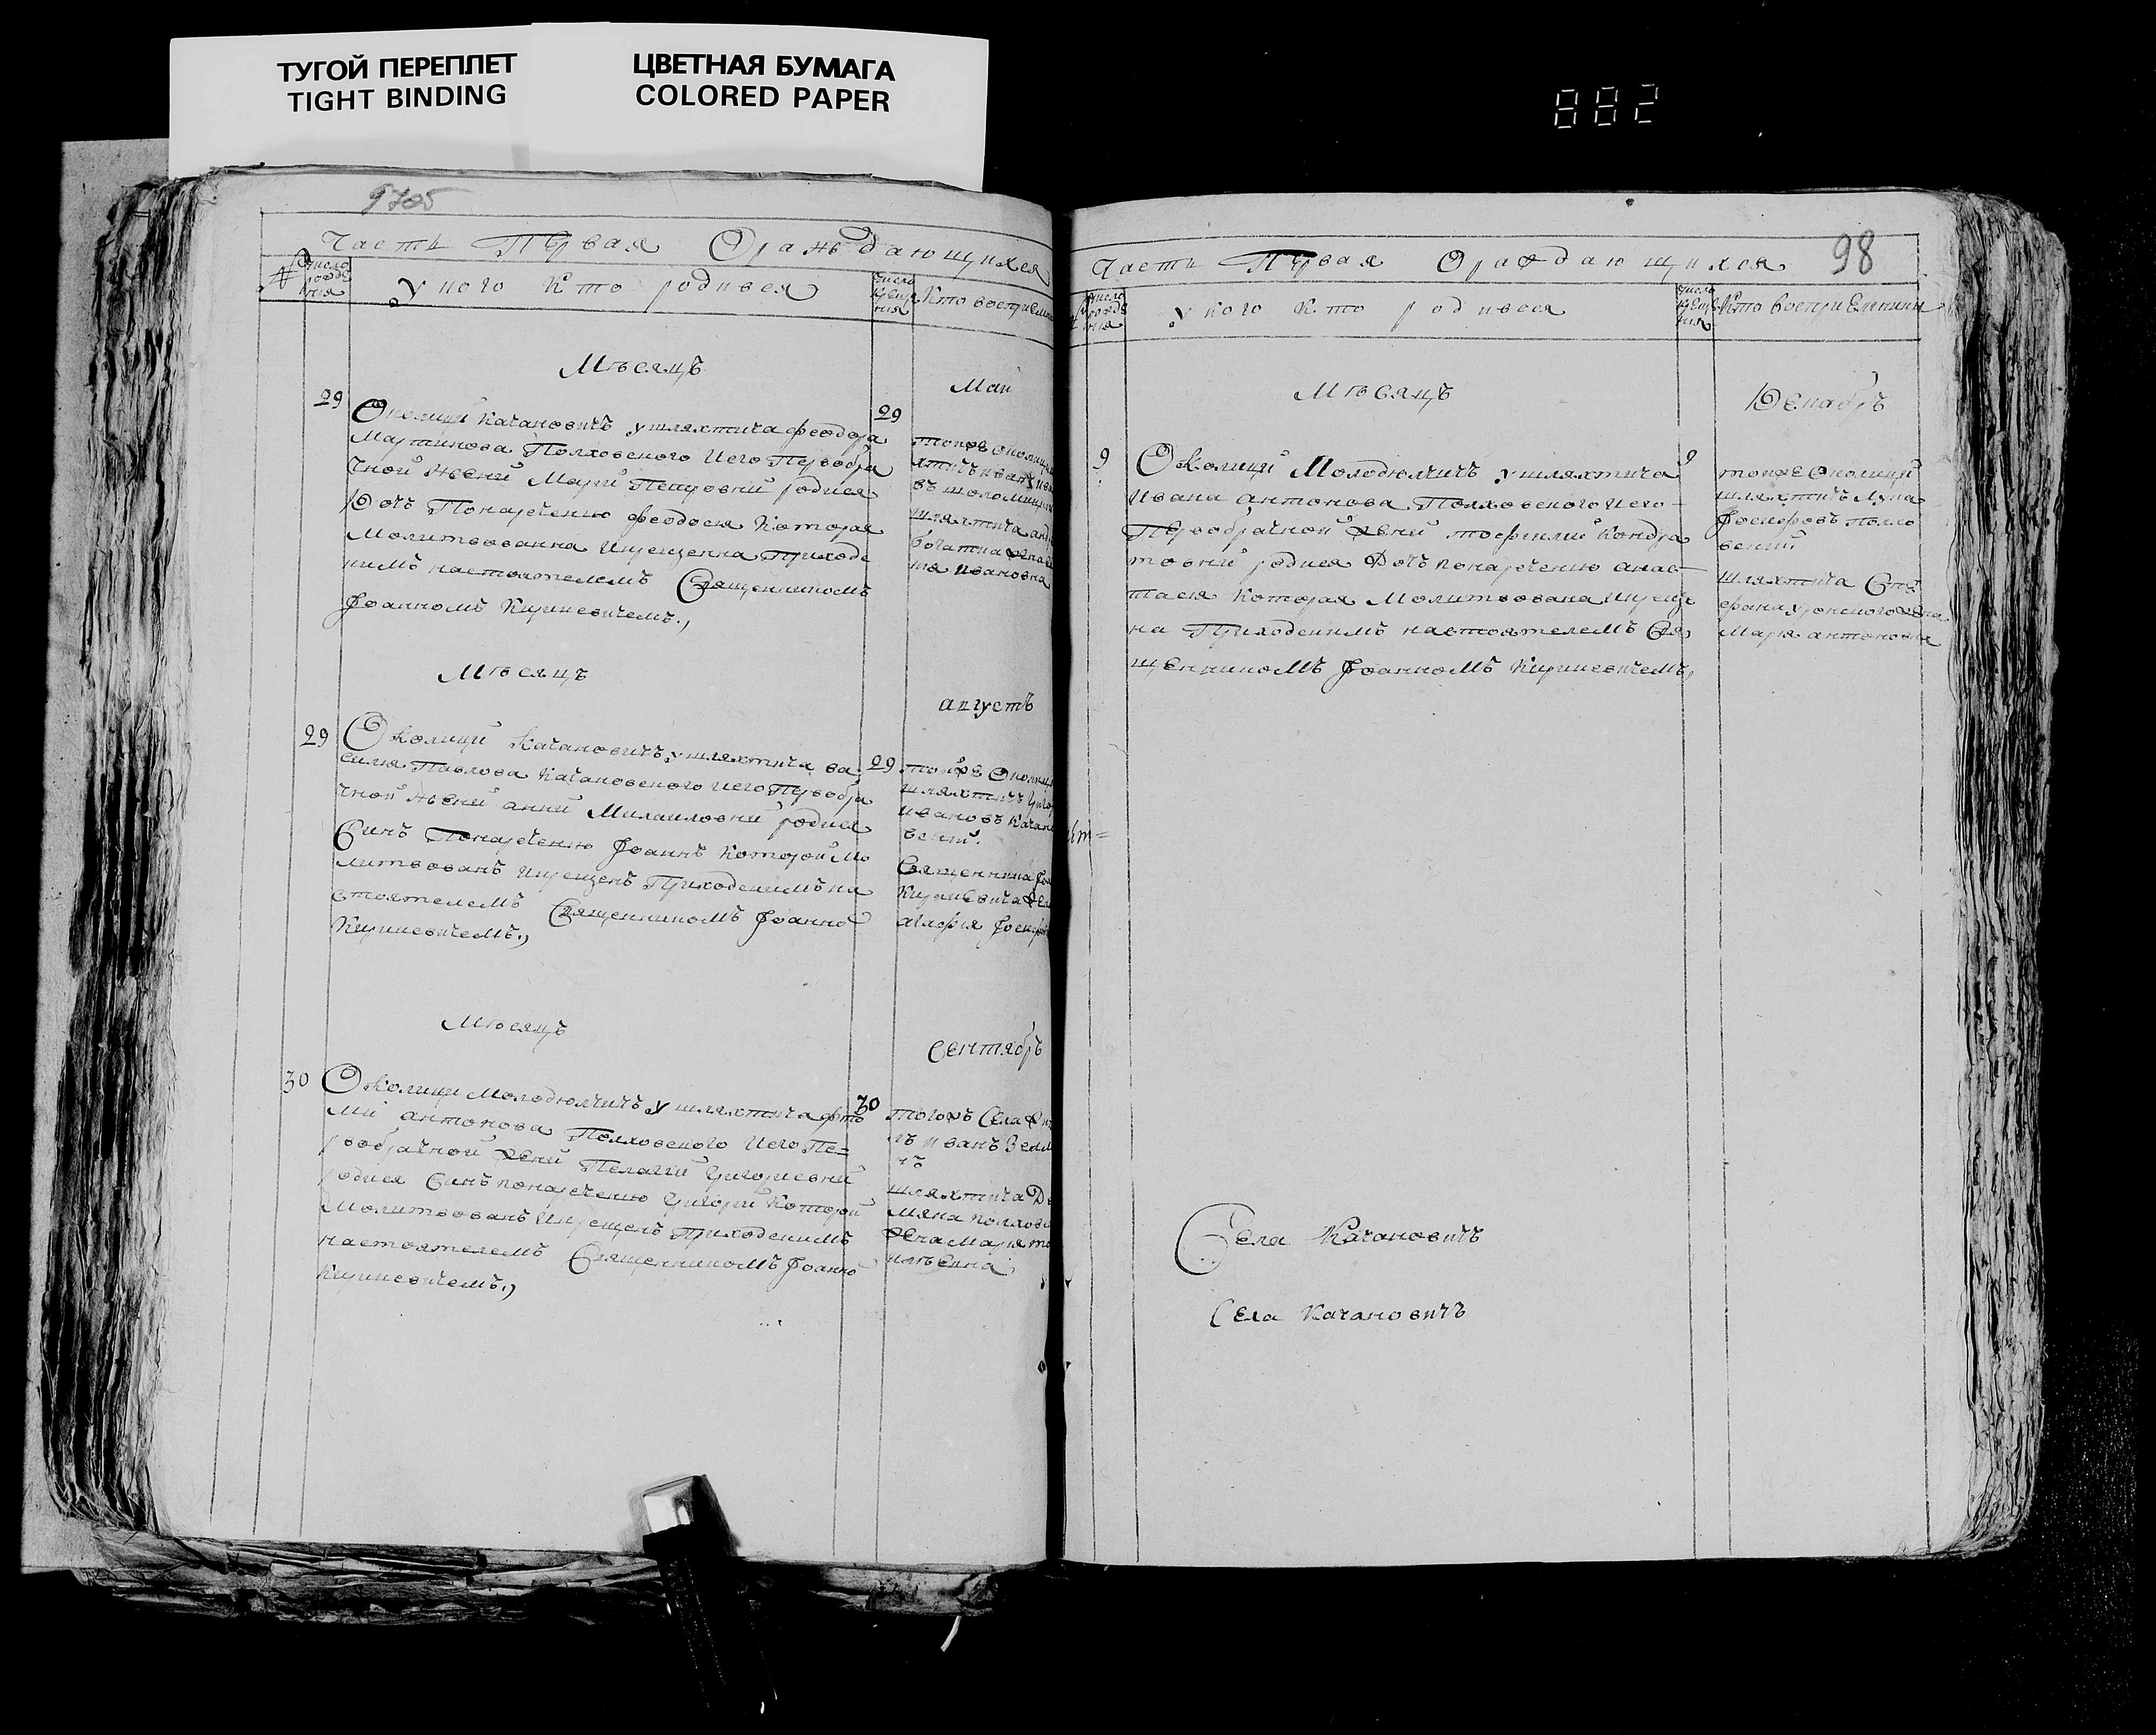 ТУГОЙ ПЕРЕПЛЕТ
TIGHT BINDING
ЦВЕТНАЯ БУМАГА
COLORED PAPER
882
9705
Часть Первая О раждающихся
№ Число рожде ния
У кого кто родився
Число креще ния
Кто восприем
Мѣсяцъ
Май
29
29
Околици Качановичъ у шляхтича феодора
Мартинова Полховского и его Первобра
чной жени Марїи Петровни родися
Дочъ По наречению феодосия Которая
Молитвованна и крещенна Приходс
кимъ настоятелемъ Священникомъ
Іоанномъ Кириневичемъ.,
тоижъ околици
шляхтича
ия Ивановна
Мѣсяцъ
августъ
29
29
Околици Качановичъ, у шляхтича ва
силия Павлова Качановского и его Первобра
чной жени анни Михаиловни родися
Синъ По наречению Іоаннъ Которои Мо
литвованъ и крещенъ Приходскимъ на
стоятелемъ Священникомъ Іоанно
Кириневичемъ.,
тойже Околици
шляхтичъ
ивановъ Качано
вский.
Священника
агафия
Мѣсяцъ
Сентябрь
30
30
Околици Молодюлчичъ У шляхтича
антонова Полховского и его Пе=
рвобрачной жени Пелагїи Григориевни
родися Синъ по наречению Григорїи Которои
Молитвованъ и крещенъ Приходскимъ
настоятелемъ Священникомъ Іоанно
Кириневичемъ.,
тогожъ Села
иванъ
шляхтича Де
мяна полхов
жена Мария
98
Часть Первая О раждающихся
Число рожде ния
У кого кто родився
Число креще ния
Кто восприемники
Мѣсяцъ
Декабрь
9
9
Околици Молодюлчичъ У шляхтича
Ивана антонова Полховского и его
Первобрачной жени тофилии Кондра
товни родися Дочъ по наречению анас
тасия Которая Молитвована и креще
на Приходскимъ настоятелемъ Свя
щенникомъ Іоанномъ Кириневичемъ,
тойже околици
шляхтичъ Лука
Іосифовъ полхо
вский
шляхтича Сте
фана жена
Мария антоновна
Села Качановичъ
Села Качановичъ